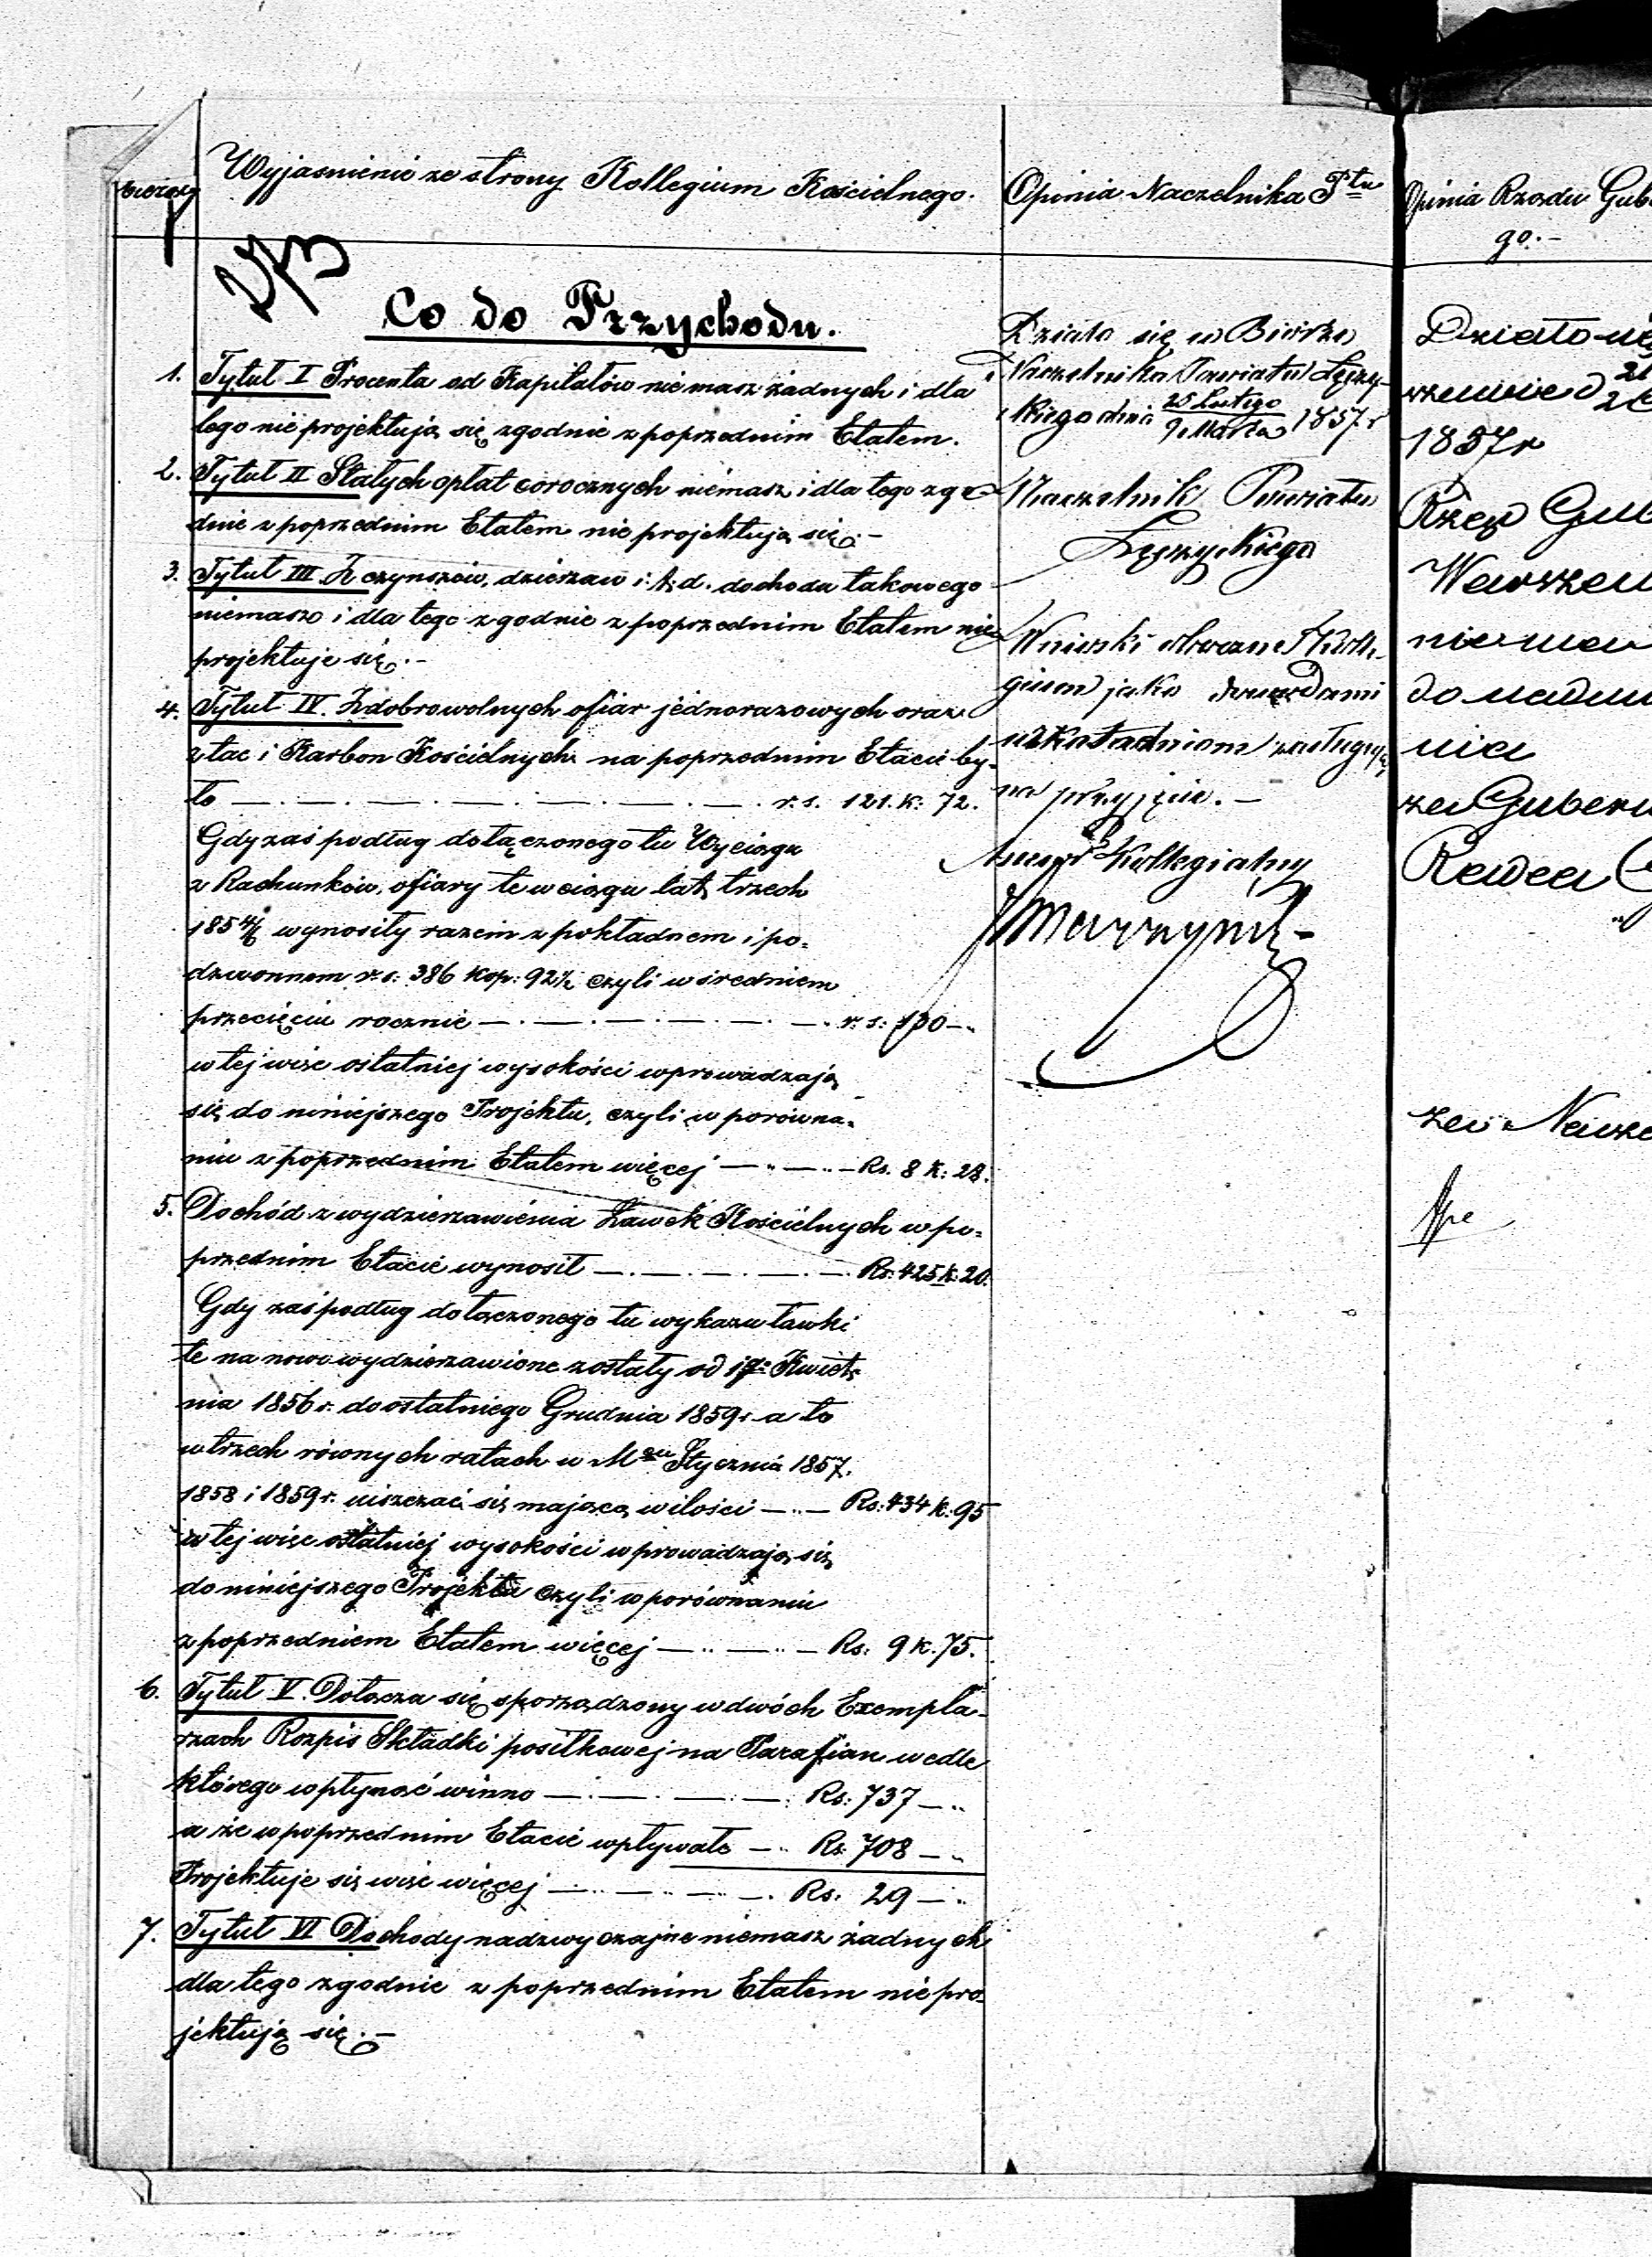 bieżący
Wyjasnienie ze strony Kollegium Kościelnego.
Co do Przychodu.
1. Tytuł I Procenta od Kapitałów niemasz żadnych i dla
tego nie projektują się zgodnie z poprzednim Etatem.
2. Tytuł II Stałych opłat corocznych niemasz i dla tego zgo
dnie z poprzednim Etatem nie projektują się.-
3. Tytuł III Z czynszów, dzierzaw i t. d. dochodu takowego
niemasz i dla tego zgodnie z poprzednim Etatem nie
projektuje się.-
4. Tytuł IV. Z dobrowolnych ofiar jednorazowych oraz
z tac i Karbon Kościelnych na poprzednim Etacie by-
ło — . — . — . — . — r. s. 121. k: 72.
Gdy zaś podług dołączonego tu Wyciągu
z Rachunków, ofiary te w ciągu lat trzech
1854/6 wynosiły razem z pokładnem i po-
dzwonnem r. s: 386 kop: 92½ czyli w sredniem
przecięciu rocznie — . — . — . — r. s: 130 — „
w tej więc ostatniej wysokości wprowadzają
się do niniejszego Projektu, czyli w porówna-
niu z poprzednim Etatem więcej — „ — „ — Rs. 8 k: 28.
5. Dochód z wydzierzawienia Ławek Kościelnych w po-
przednim Etacie wynosił — . — . — . — Rs: 425 k: 20.
Gdy zaś podług dołączonego tu wykazu ławki
te na nowo wydzierzawione zostały od 1go Kwiet-
nia 1856 r. do ostatniego Grudnia 1859 r. a to
w trzech równych ratach w Mcu Stycznia 1857.
1858 i 1859 r. uiszczać się mającą w ilości — „ — Rs: 434 k: 95
w tej więc ostatniej wysokości wprowadzają się
do niniejszego Projektu czyli w porównaniu
z poprzedniem Etatem więcej — „ — „ — Rs: 9 k. 75.
6. Tytuł V. Dołącza się sporządzony w dwóch Exempla-
rzach Rozpis Składki posiłkowej na Parafian wedle
którego wpłynąć winno — . — . — . — Rs: 737 — „
a że w poprzednim Etacie wpływało — „ Rs: 708 — „
Projektuje się więc więcej — „ — „ — . Rs: 29 — „
7. Tytuł VI Dochody nadzwyczajne niemasz żadnych
dla tego zgodnie z poprzednim Etatem nie pro-
jektują się.-
Opinia Naczelnika Ptu
Działo się w Biórze
Naczelnika Powiatu Łęczy-
ckiego dnia 25 Lutego / 9 Marca 1857 r
Naczelnik Powiatu
Łęczyckiego
Wnioski obecne Kolle-
gium jako dowodami
uzasadnione zasługują
na przyjęcie.-
Assesor Kollegialny
Opinia Rządu Gub
go.-
Działo się
1857 r
Rząd Gub
Warszaw
nie ma
do nadmie
nia
za Guberna
Radca
za Nacze